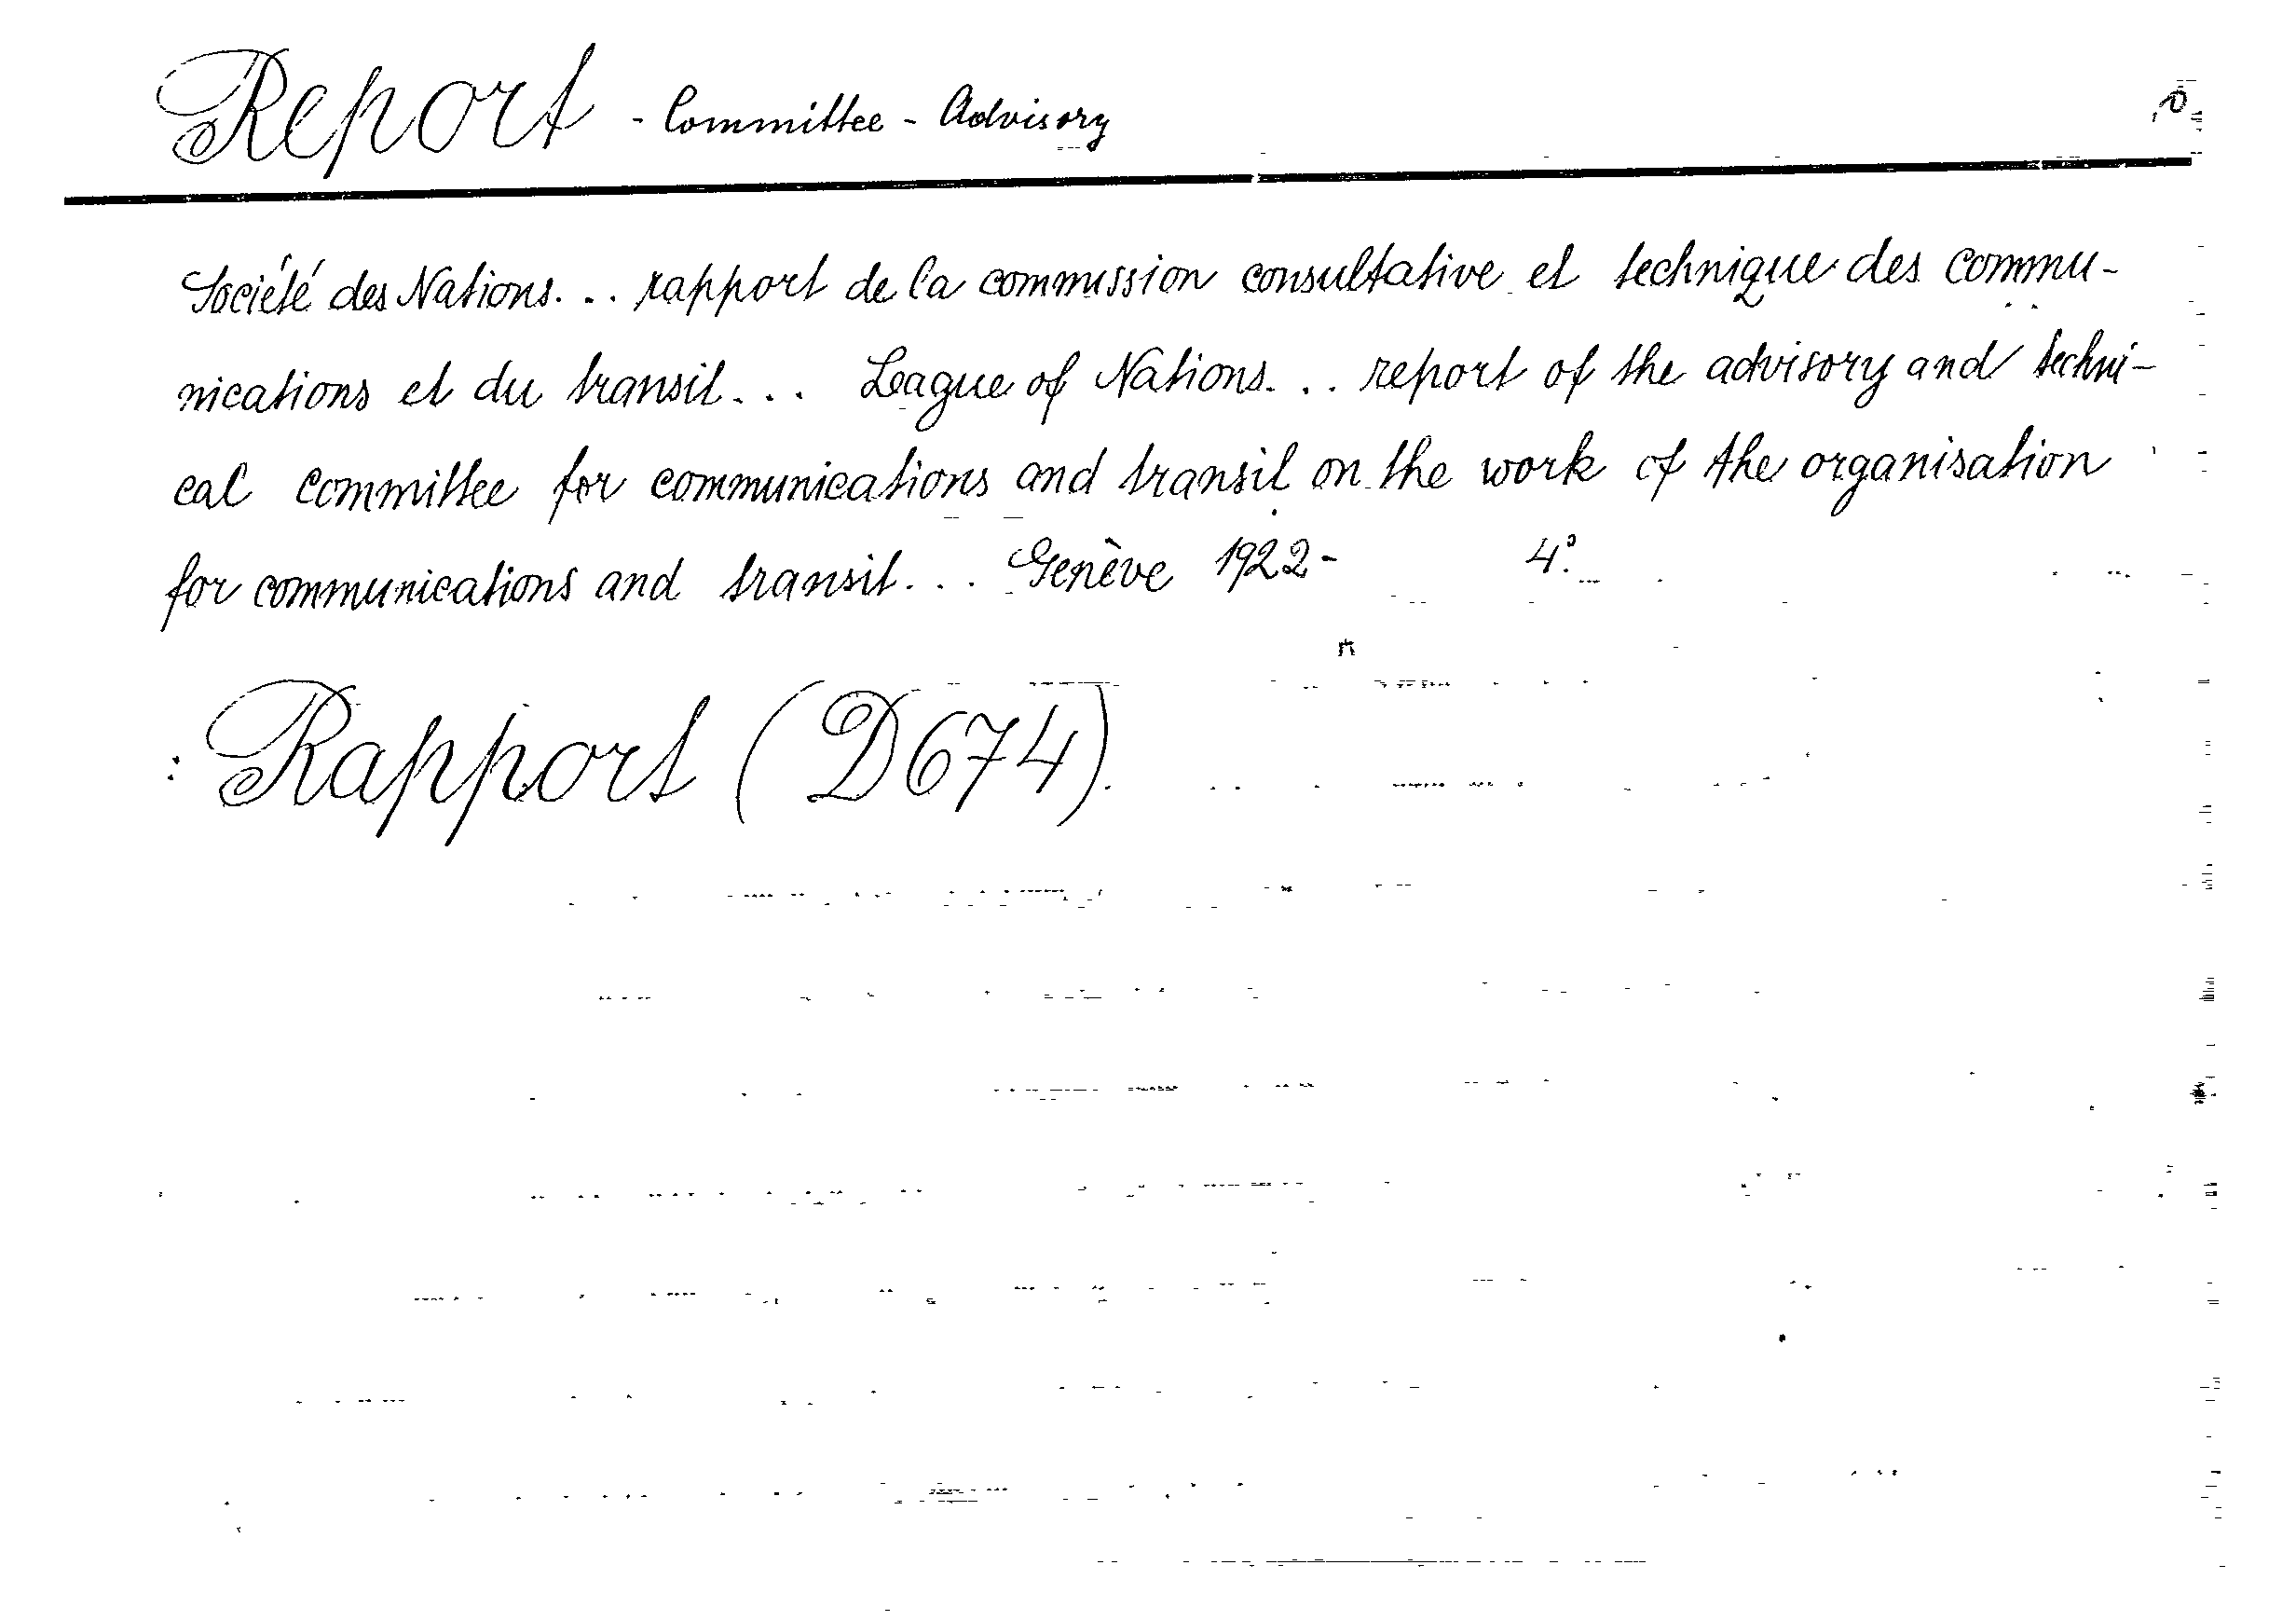 Report - Committee - Advisory
Société des Nations... rapport de la commission consultative et technique des commu-
nications et du transit... League of Nations... report of the advisory and techni-
cal committee for communications and transit on the work of the organisation
for communications and transit... Genève 1922- 4°.
: Rapport (D674).